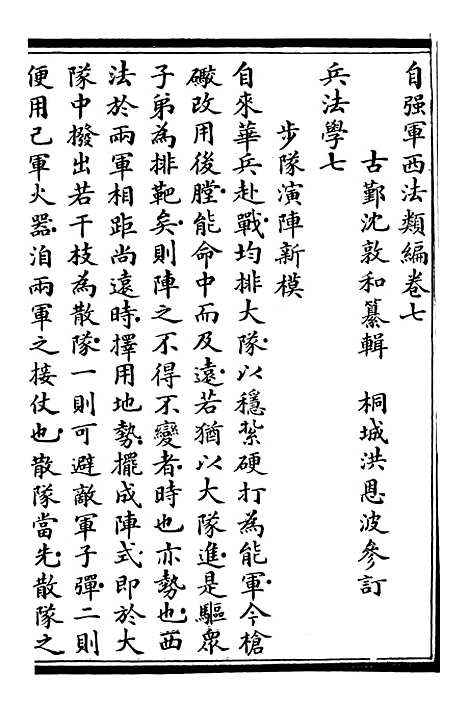 自强軍西法類編卷七
古鄞沈敦和纂輯　桐城洪恩波參訂
兵法學七
步隊演陣新模
自來華兵赴戰均排大隊以穩紮硬打為能軍今槍
礮改用後膛能命中而及遠若猶以大隊進是驅衆
子弟為排靶矣則陣之不得不變者時也亦勢也西
法於兩軍相距尚遠時擇用地勢擺成陣式即於大
隊中撥出若干枝為散隊一則可避敵軍子彈二則
便用己軍火器洎兩軍之接仗也散隊當先散隊之